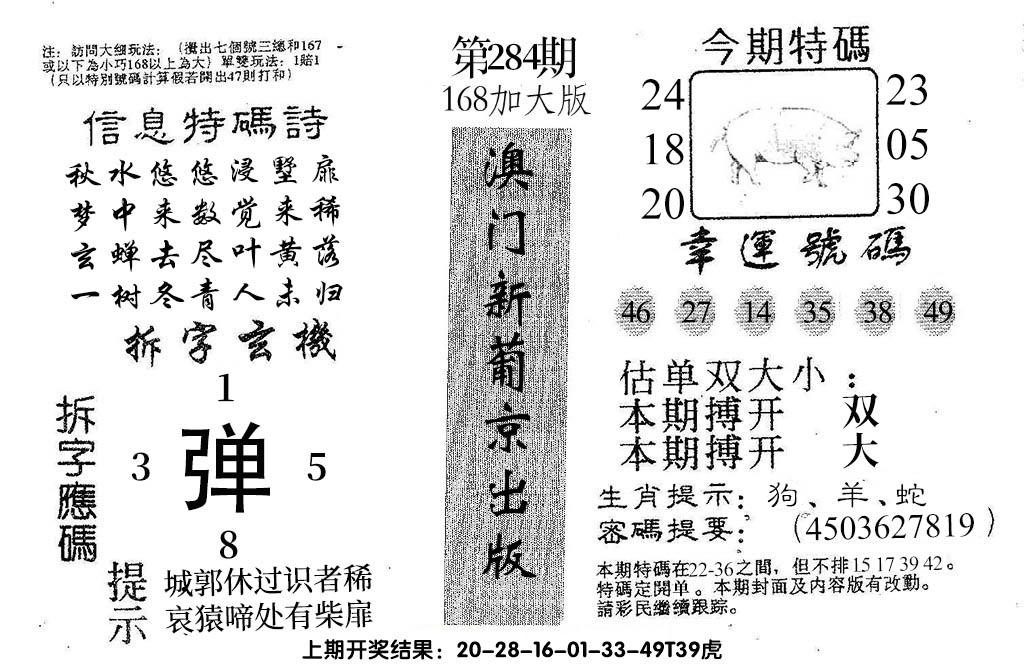 注：訪問大細玩法：（攪出七個號三總和167
或以下為小巧168以上為大）單雙玩法：1賠1
（只以特別號碼計算假若開出47則打和）
信息特碼詩
秋水悠悠浸墅扉
梦中来数觉来稀
玄蝉去尽叶黄落
一树冬青人未归
拆字玄機
拆字應碼
1
3 弹 5
8
提示
城郭休过识者稀
哀猿啼处有柴扉
第284期
168加大版
澳门新葡京出版
今期特碼
24 23
18 05
20 30
幸運號碼
46 27 14 35 38 49
估单双大小：
本期搏开 双
本期搏开 大
生肖提示：狗、羊、蛇
密碼提要：（4503627819）
本期特碼在22-36之間，但不排15 17 39 42。
特碼定開单。本期封面及内容版有改動。
請彩民繼續跟踪。
上期开奖结果：20-28-16-01-33-49T39虎